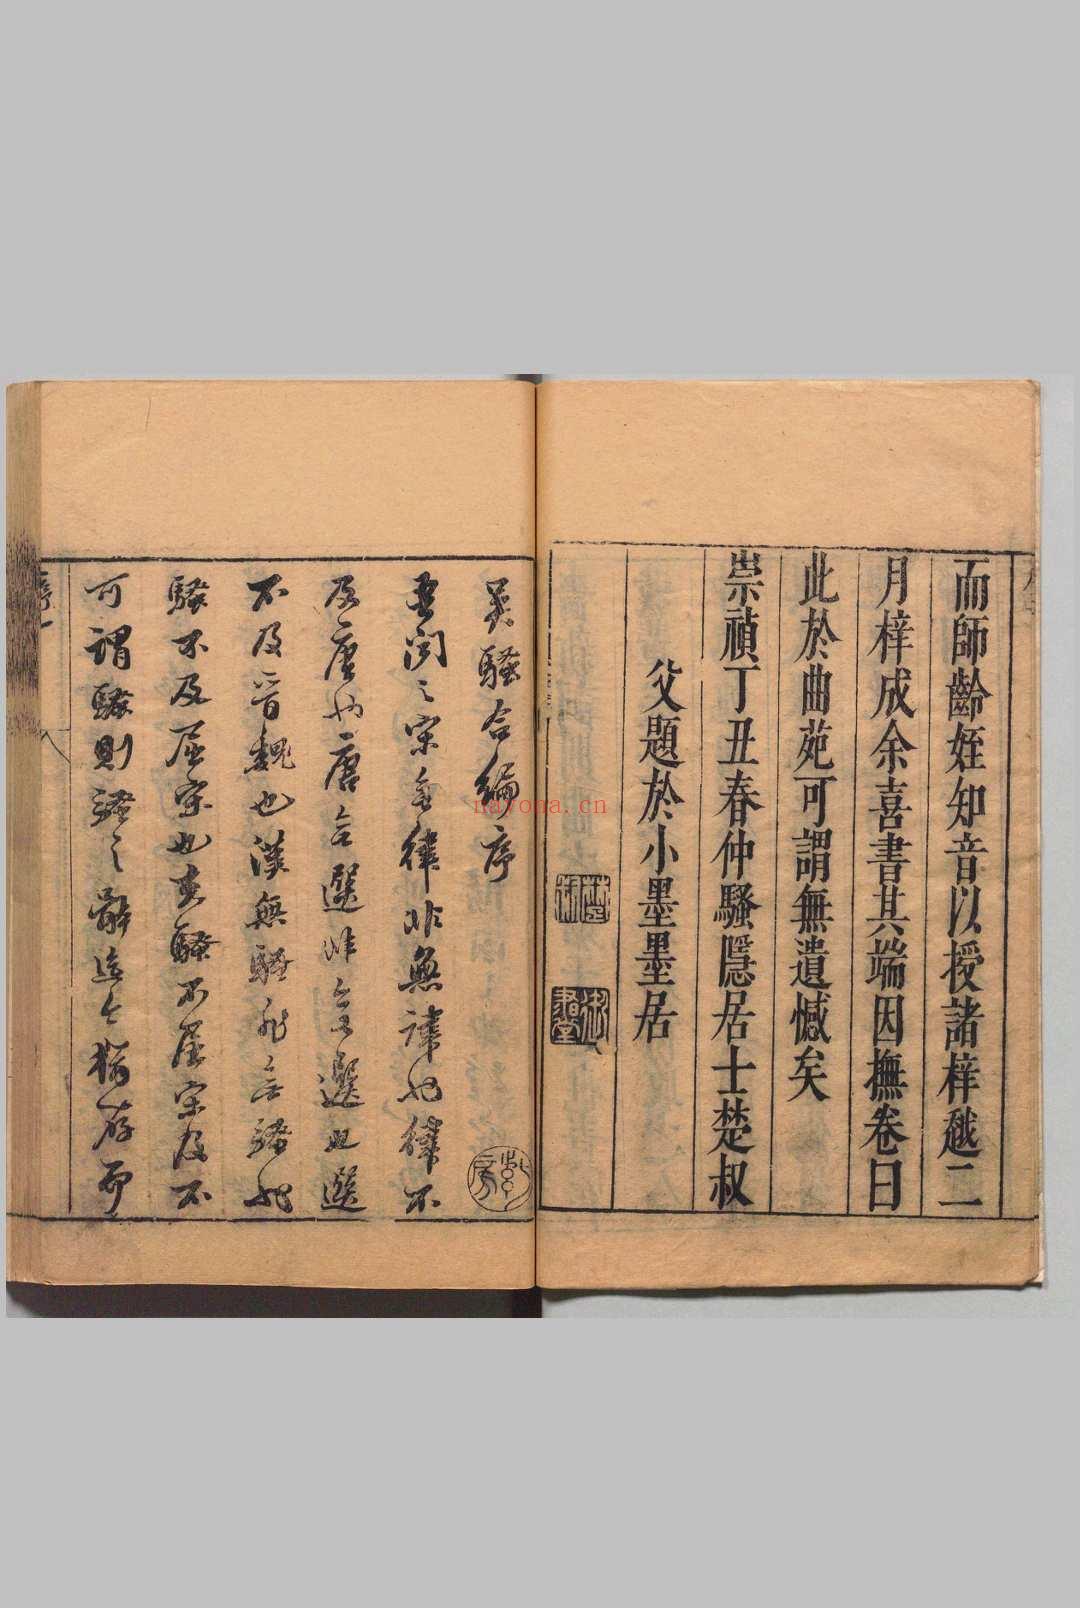 而師齡姪知音以授諸梓越二
月梓成余喜書其端因撫卷曰
此於曲苑可謂無遺憾矣
崇禎丁丑春仲騷隱居士楚叔
父題於小墨墨居
吳騷合編序
吾聞之宋無律非無律也律不
及唐也唐無選非無選也選
不及晉魏也漢無騷非無騷也
騷不及屈宋也夫騷不屈宋及不
可謂騷則騷之辭迄今猶存而
序一
nayona.cn